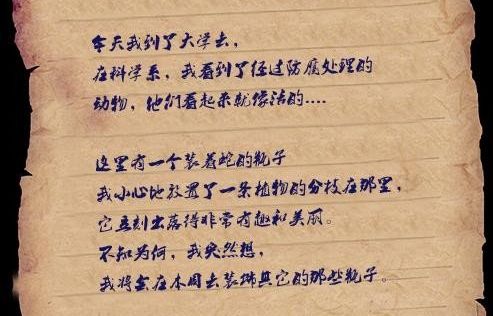 今天我到了大学去,
在科学系,我看到了经过防腐处理的
动物,他们看起来就像活的....
这里有一个装着蛇的瓶子
我小心地放置了一条植物的分枝在那里,
它立刻出落得非常有趣和美丽。
不知为何,我突然想,
我将会在本周去装饰其它的那些瓶子。